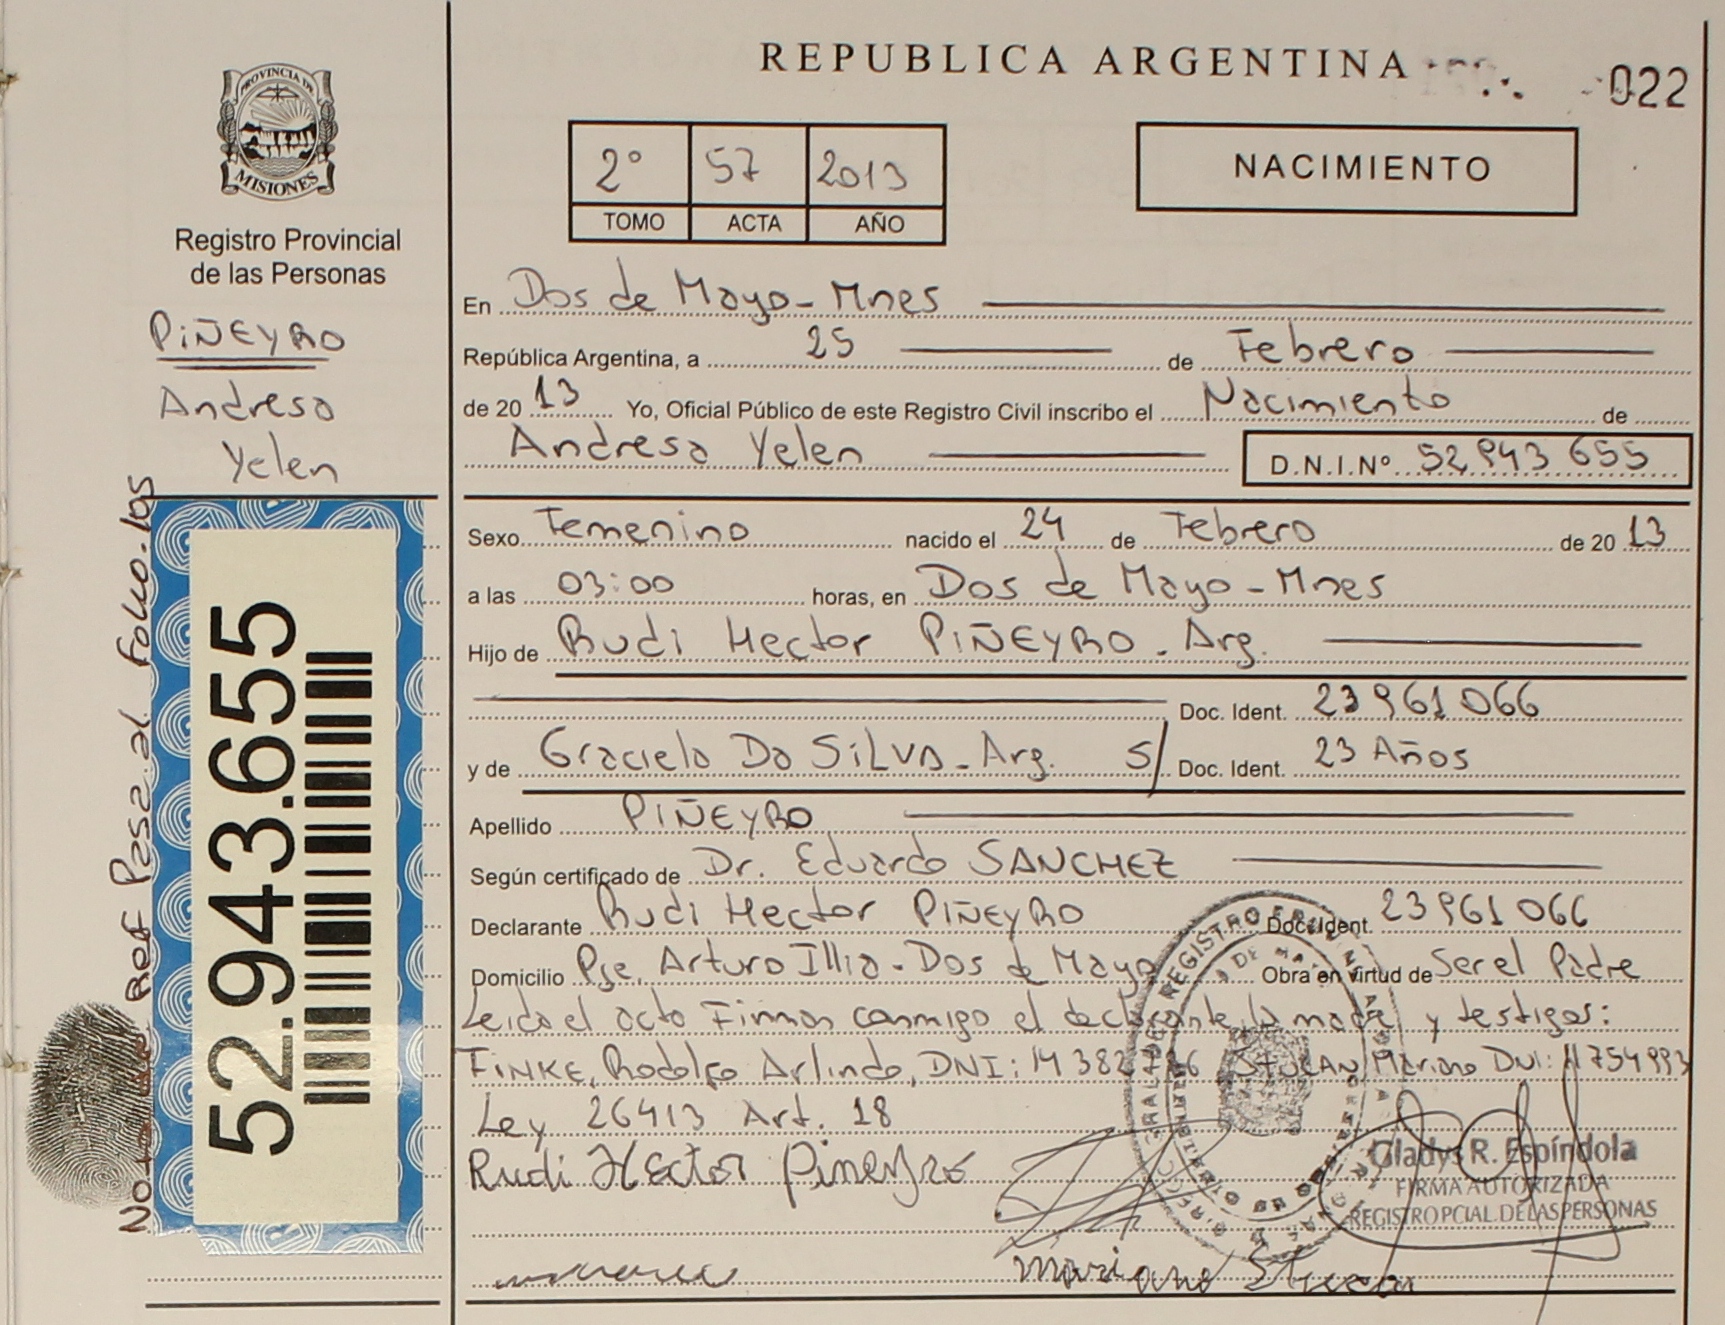 REPUBLICA ARGENTINA
022
PROVINCIA DE
MISIONES
Registro Provincial
de las Personas
PIÑEYRO
Andresa
Yelen
Nota de Ref Pasa al Folio 105
52.943.655
2° 57 2013
TOMO ACTA AÑO
NACIMIENTO
En Dos de Mayo - Mnes
República Argentina, a 25 de Febrero
de 20 13 Yo, Oficial Público de este Registro Civil inscribo el Nacimiento de
Andresa Yelen D.N.I.Nº 52 943 655
Sexo Femenino nacido el 24 de Febrero de 20 13
a las 03:00 horas, en Dos de Mayo - Mnes
Hijo de Rudi Hector PIÑEYRO - Arg.
Doc. Ident. 23961066
y de Graciela Da SILVA - Arg. S/ Doc. Ident. 23 Años
Apellido PIÑEYRO
Según certificado de Dr. Eduardo SANCHEZ
Declarante Rudi Hector PIÑEYRO Doc. Ident. 23961066
Domicilio Pje. Arturo Illia - Dos de Mayo Obra en virtud de Ser el Padre
Leida el acta Firman conmigo el declarante, la madre y testigos:
FINKE, Rodolfo Arlindo, DNI: 14 382 Mariano DNI:
Ley 26413 Art. 18
Rudi Hector Piñeyro
Gladys R. Espíndola
FIRMA AUTORIZADA
REGISTRO PCIAL. DE LAS PERSONAS
Mariano